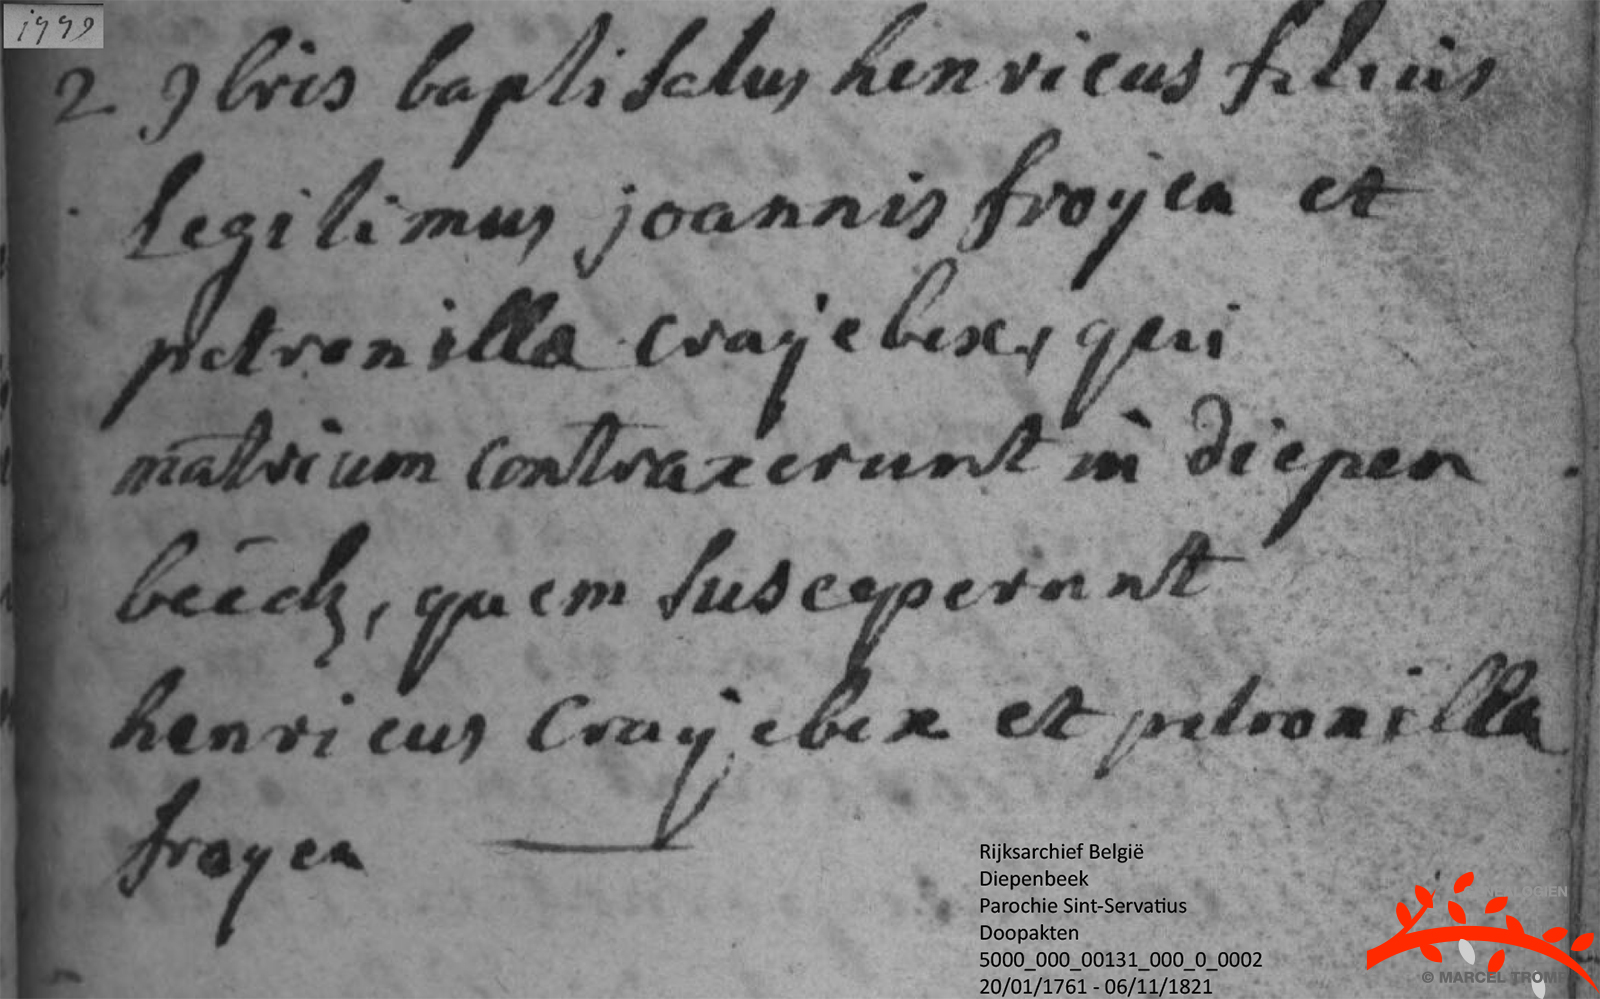 1779
2 9bris baptisatus henricus filius
Legitimus joannis froÿen et
petronilla craÿebex, qui
matrium contraxerunt in diepen
beeck, quem susceperunt
henricus Craÿebex et petronilla
froyen
Rijksarchief België
Diepenbeek
Parochie Sint-Servatius
Doopakten
5000_000_00131_000_0_0002
20/01/1761 - 06/11/1821
© MARCEL TROMP